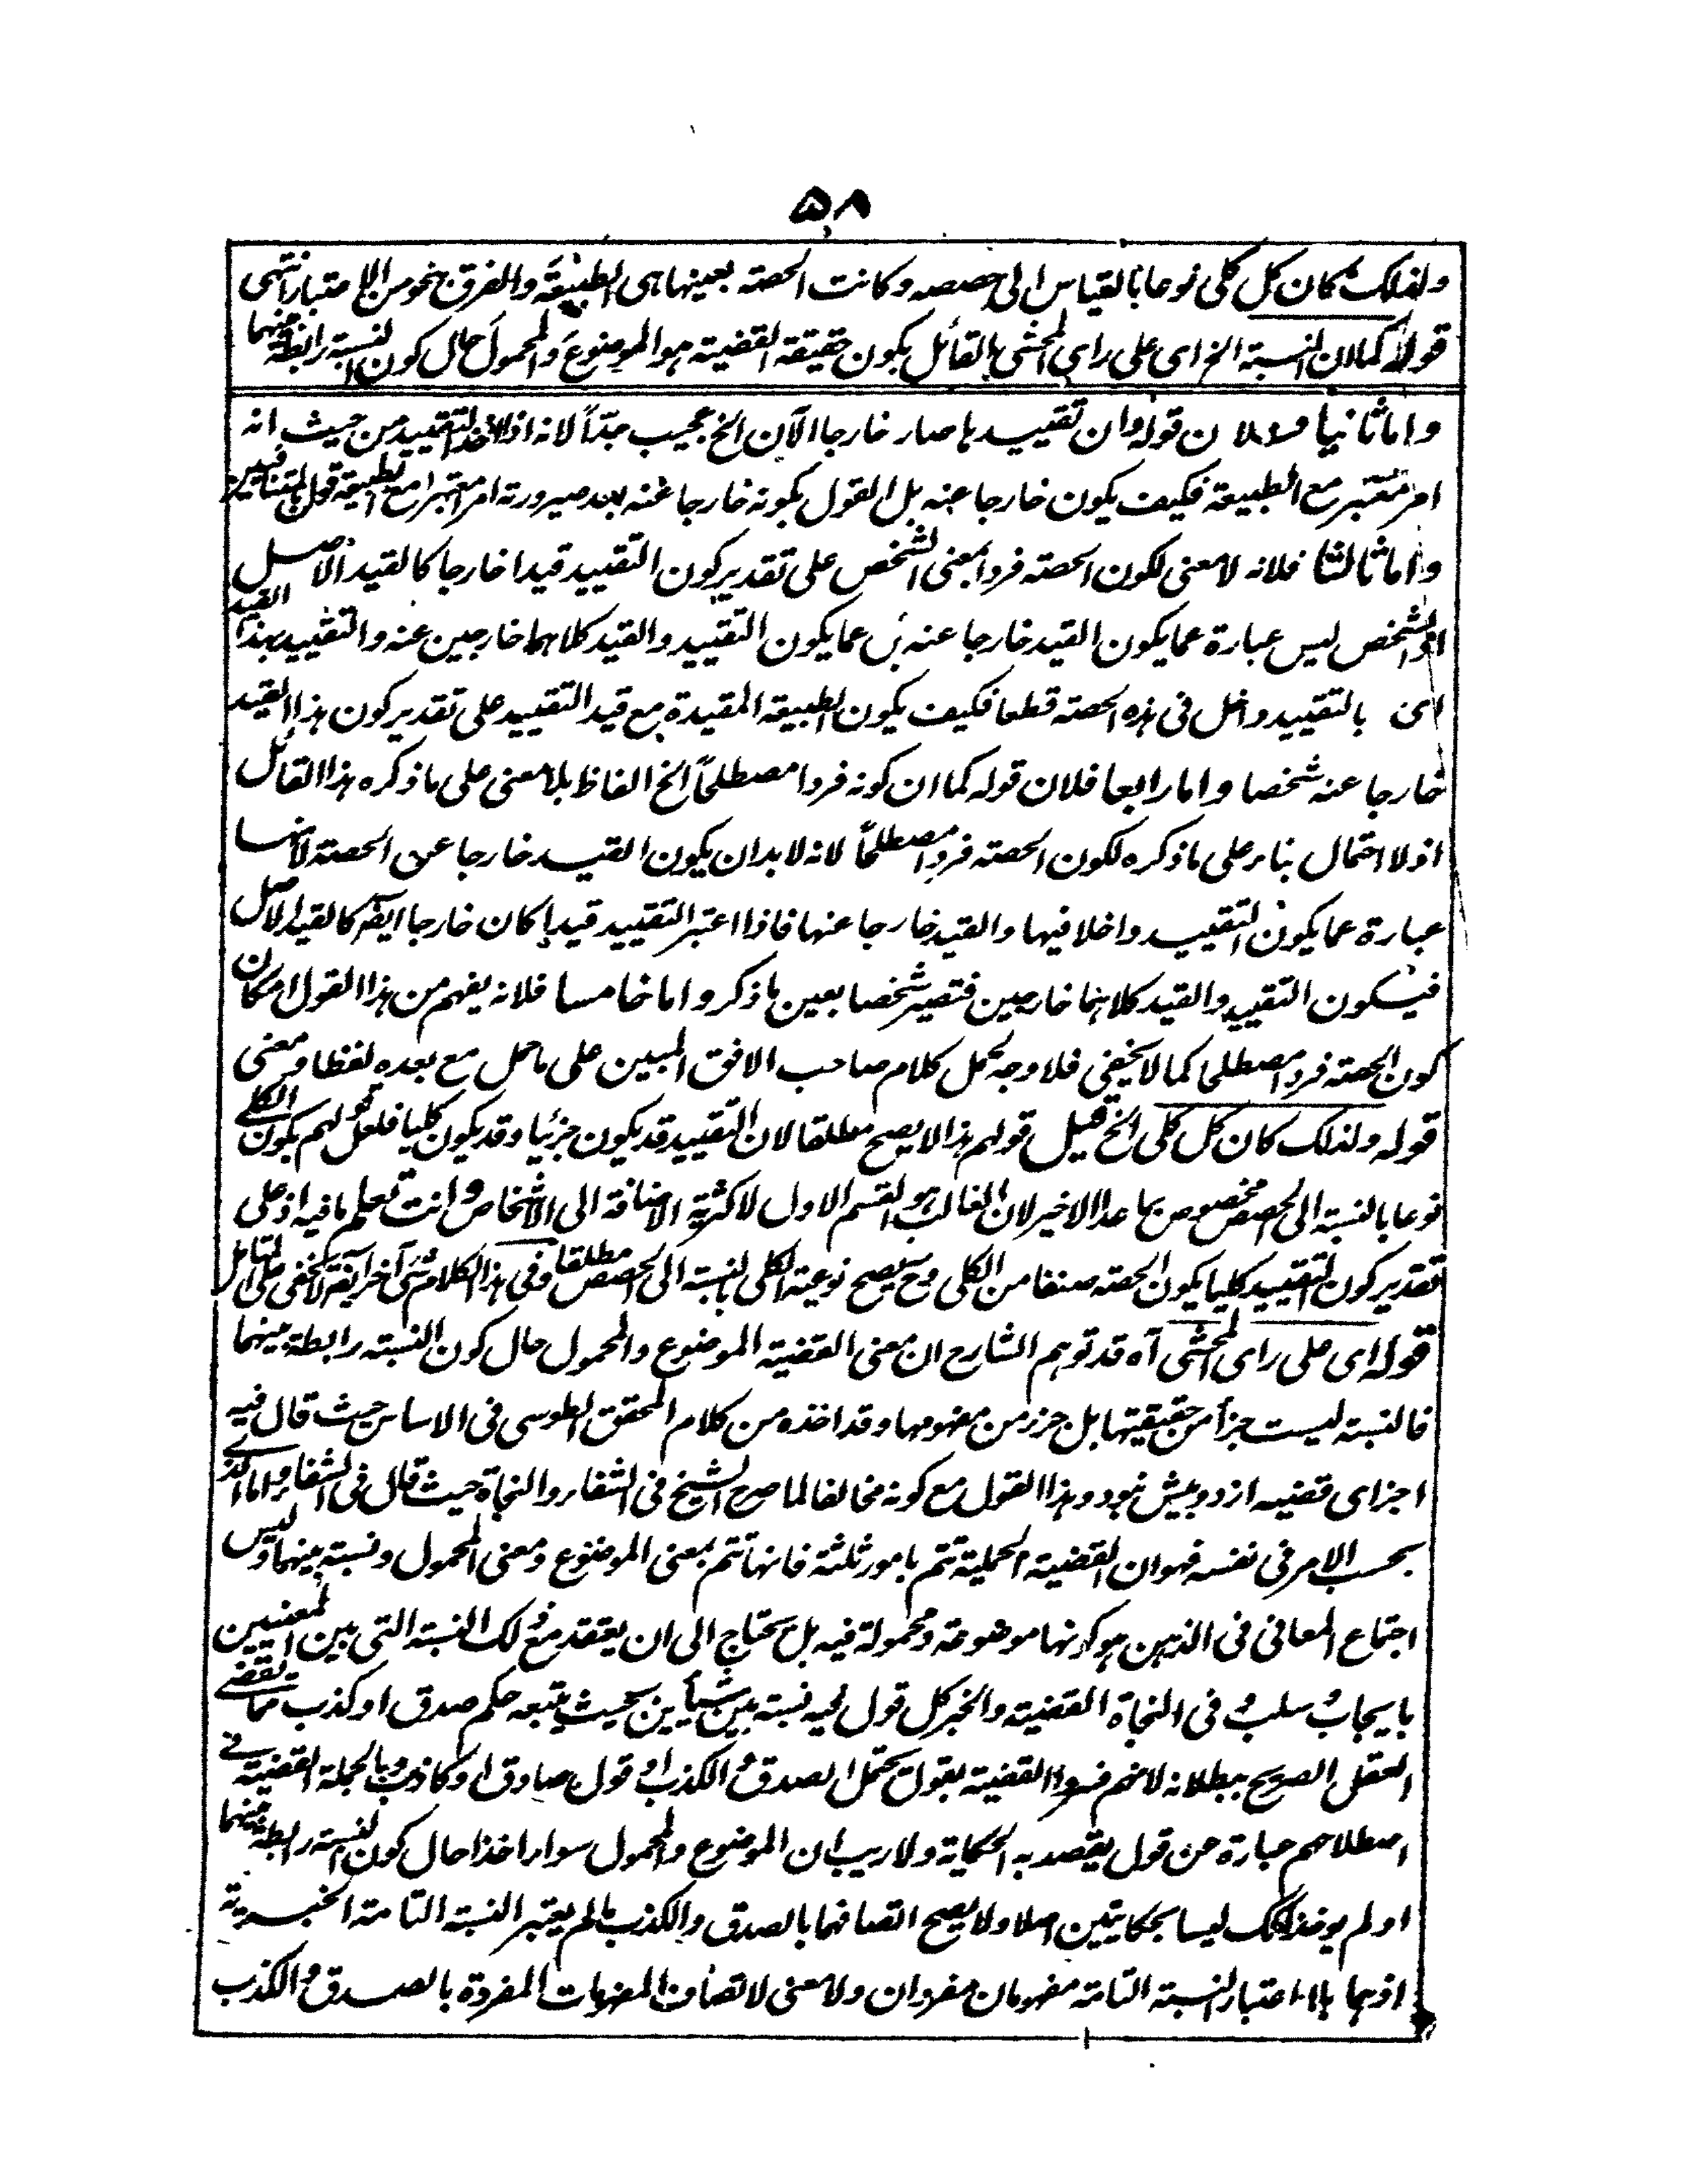 ۵۸
ولذلك كان كل كلى نوعا بالقياس الى حصصه وكانت الحصته بعينها هى الطبيعة والفرق بنحو من الاعتبار انتهى
قوله كملان النسبته الخ اى على راى المحشى القائل بكون حقيقة القضيته هو الموضوع والمحمول حال كون النسبته رابطة بينهما
واما ثانيا فلان قوله وان تقييدها صار خارجا الآن الخ عجيب جدّاً لانه اذا اخذ التقييد من حيث انه
امر معتبر مع الطبيعة فكيف يكون خارجا عنه بل القول بكونه خارجا عنه بعد صيرورته امرا معتبرا مع الطبيعة قول بالمتنافيين
واما ثالثا فلانه لا معنى لكون الحصته فردا بمعنى الشخص على تقدير كون التقييد قيدا خارجا كالقيد الاصل
اذ الشخص ليس عبارة عما يكون القيد خارجا عنه بل عما يكون التقييد والقيد كلاهما خارجين عنه والتقييد بهذا القيد
اى بالتقييد داخل فى هذه الحصته قطعا فكيف يكون الطبيعة المقيدة مع قيد التقييد على تقدير كون هذا القيد
خارجا عنه شخصا واما رابعا فلان قوله كما ان كونه فردا مصطلحاً الخ الفاظ بلا معنى على ما ذكره هذا القائل
اذ لا احتمال بناء على ما ذكره لكون الحصته فردا مصطلحاً لانه لا بد ان يكون القيد خارجا عن الحصته لانها
عبارة عما يكون التقييد داخلا فيها والقيد خارجا عنها فاذا اعتبر التقييد قيدا كان خارجا ايضا كالقيد الاصل
فيكون التقييد والقيد كلاهما خارجين فتصير شخصا بعين ما ذكر واما خامسا فلانه يفهم من هذا القول امكان
كون الحصته فردا مصطلحا كما لا يخفى فلا وجه لحمل كلام صاحب الافق المبين على ما حمل مع بعده لفظا ومعنى
قوله ولذلك كان كل كلى الخ قيل قولهم هذا لا يصح مطلقا لان التقييد قد يكون جزئيا وقد يكون كليا فلعل قولهم بكون الكلى
نوعا بالنسبة الى الحصص مخصوص بما عدا الاخير لان الغالب هو القسم الاول لاكثرية الاضافة الى الاشخاص وانت تعلم ما فيه اذ على
تقدير كون التقييد كليا يكون الحصته صنفا من الكلى وح يصح نوعية الكلى بالنسبته الى الحصص مطلقا وفى هذا الكلام شئ آخر ايضا لا يخفى على المتامل
قوله اى على راى المحشى آه قد توهم الشارح ان معنى القضيته الموضوع والمحمول حال كون النسبته رابطة بينهما
فالنسبته ليست جزأ من حقيقتها بل جزء من مفهومها وقد اخذه من كلام المحقق الطوسى فى الاساس حيث قال فيه
اجزاى قضيه از دو بيش نبود وهذا القول مع كونه مخالفا لما صرح الشيخ فى الشفاء والنجاة حيث قال فى الشفاء واما الذى
بحسب الامر فى نفسه فهو ان القضيته الحملية تتم بامور ثلثة فانها تتم بمعنى الموضوع ومعنى المحمول ونسبته بينهما وليس
اجتماع المعانى فى الذهن هو كونها موضوعة ومحمولة فيه بل يحتاج الى ان يعتقد مع ذلك النسبته التى بين المعنيين
بايجاب وسلب و فى النجاة القضيته والخبر كل قول فيه نسبته بين شيأين بحيث يتبعه حكم صدق او كذب مما يقضى
العقل الصريح ببطلانه لانهم فسروا القضيته بقول يحتمل الصدق والكذب او قول صادق او كاذب وبالجملة القضيته فى
اصطلاحهم عبارة عن قول يقصد به الحكاية ولا ريب ان الموضوع والمحمول سواء اخذا حال كون النسبته رابطة بينهما
او لم يوخذ كذلك ليسا بحكايتين اصلا ولا يصح اتصافهما بالصدق والكذب ما لم يعتبر النسبته التامته الخبريته
اذ هما بلا اعتبار النسبته التامته مفهومان مفردان ولا معنى لاتصاف المفهومات المفردة بالصدق والكذب